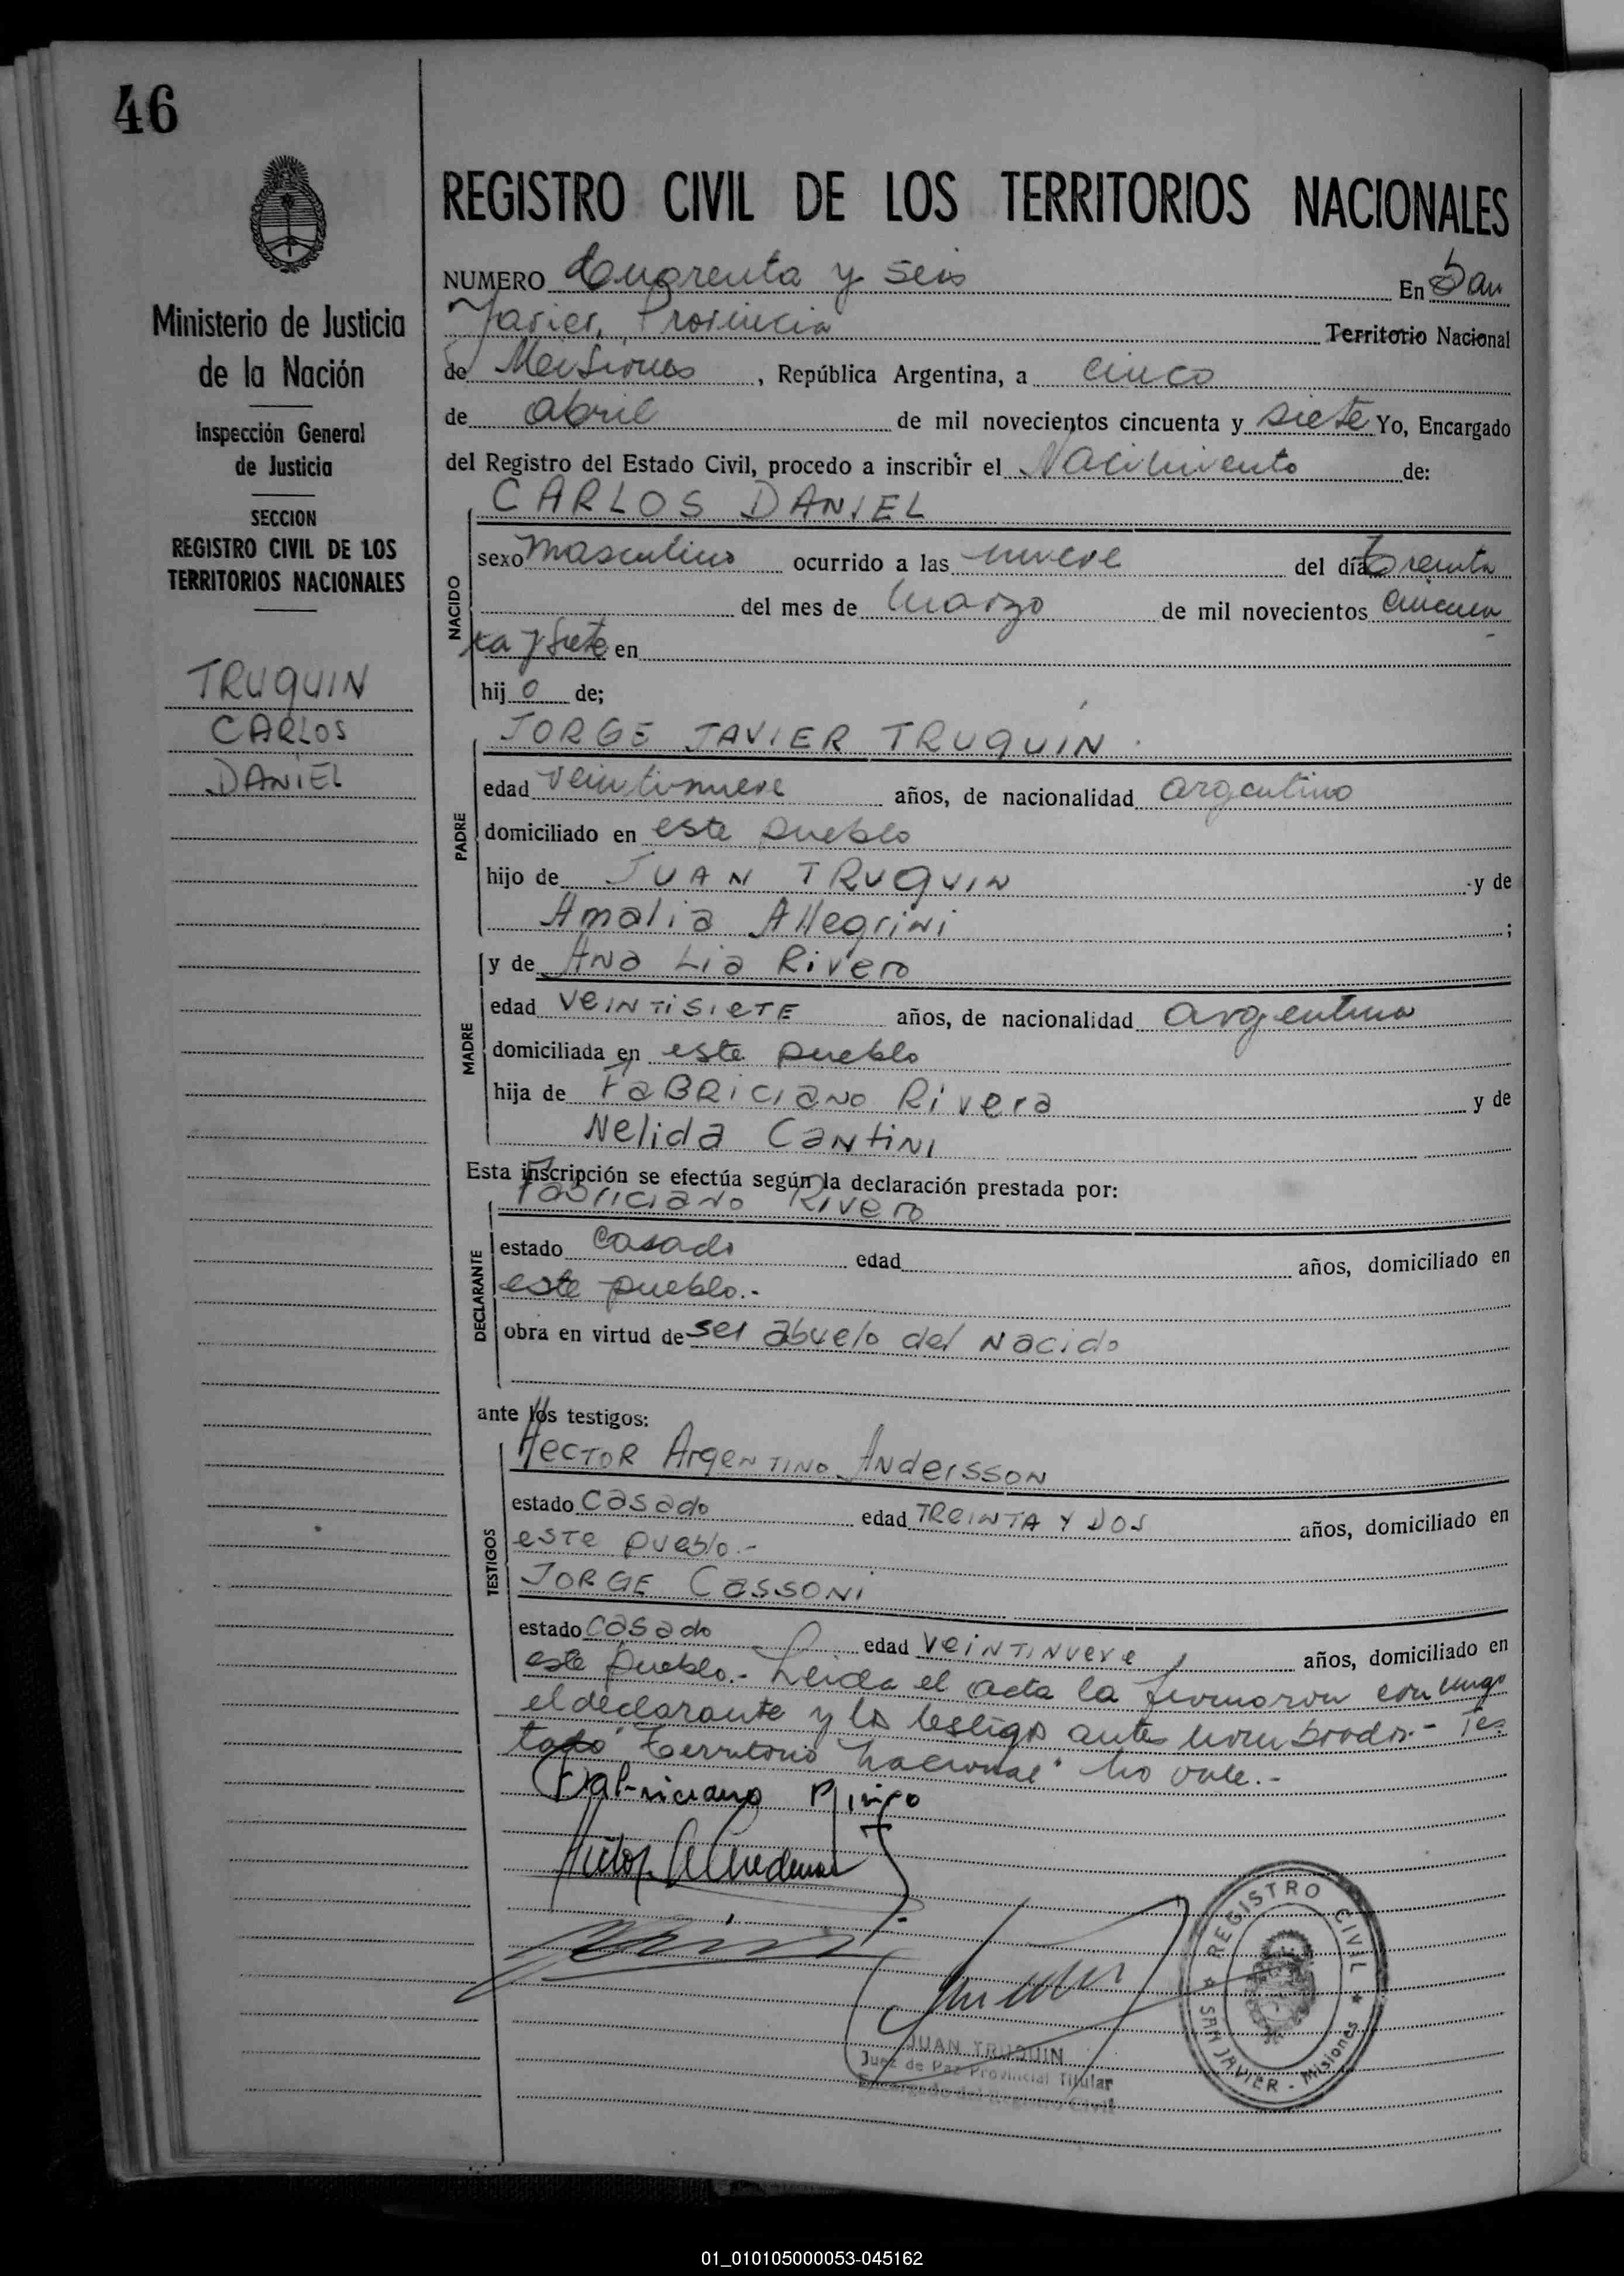 46
Ministerio de Justicia
de la Nación
Inspección General
de Justicia
SECCION
REGISTRO CIVIL DE LOS
TERRITORIOS NACIONALES
TRUQUIN
CARLOS
DANIEL
REGISTRO CIVIL DE LOS TERRITORIOS NACIONALES
NUMERO Cuarenta y seis En San
Javier, Provincia Territorio Nacional
de Misiones, República Argentina, a cinco
de abril de mil novecientos cincuenta y siete Yo, Encargado
del Registro del Estado Civil, procedo a inscribir el Nacimiento de:
NACIDO
CARLOS DANIEL
sexo masculino ocurrido a las nueve del día treinta
del mes de marzo de mil novecientos cincuen
ta y siete en
hij o de;
PADRE
JORGE JAVIER TRUQUIN.
edad veintinueve años, de nacionalidad argentino
domiciliado en este pueblo
hijo de JUAN TRUQUIN y de
Amalia Allegrini ;
MADRE
y de Ana Lia Rivero
edad VEINTISIETE años, de nacionalidad argentina
domiciliada en este pueblo
hija de FABRICIANO Rivera y de
Nelida Cantini
Esta inscripción se efectúa según la declaración prestada por:
DECLARANTE
Fabriciano Rivero
estado Casado edad años, domiciliado en
este pueblo.-
obra en virtud de ser abuelo del Nacido
ante los testigos:
TESTIGOS
HECTOR Argentino Andersson
estado Casado edad TREINTA Y DOS años, domiciliado en
este pueblo.-
JORGE Cassoni
estado casado edad VEINTINUEVE años, domiciliado en
este pueblo.- Leida el acta la firmaron conmigo
el declarante y los testigos antes nombrados.- Tes
tado "Territorio Nacional" no vale.-
Fabriciano Rivero
JUAN TRUQUIN
Juez de Paz Provincial Titular
Encargado del Registro Civil
REGISTRO CIVIL
SAN JAVIER - Misiones
01_010105000053-045162